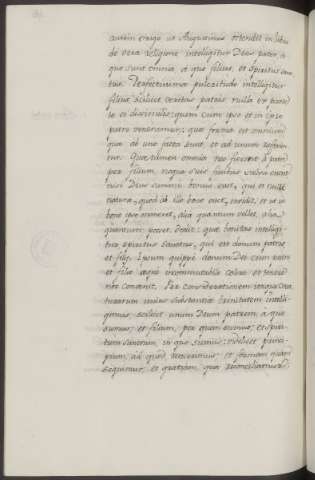 autem origo ut Augustinus ostendit in libro
de vera religione intelligitur Deus pater, a
quo sunt omnia a quo filius, et spiritus sanc
tus. Perfectissima pulcritudo intelligitur
filius, scilicet veritas patris nulla ex parte
ei dissimilis; quem cum ipso et in ipso
patre veneramur; que forma est omnium
que ab uno facta sunt, et ad unum referun
tur. Que tamen omnia nec fierent a patre
per filium, neque suis finibus salva essent
nisi Deus summe bonus esset, qui et nulli
nature, quod ab illo bona esset, invidit, et ut in
bono ipso maneret, alia quantum vellet, alia
quantum posset dedit: que bonitas intelligi
tur spiritus sanctus, qui est donum patris
et filij. Ipsum quippe donum Dei cum patre
et filio eque incommutabile colere et tenere
nos convenit. Per considerationem itaque crea
turarum unius substantie trinitatem intelli
gimus, scilicet unum Deum patrem a quo
sumus; et filium, per quem sumus; et spiri
tum sanctum, in quo sumus: videlicet princi
pium, ad quod recurrimus; et formam quam
sequimur, et gratiam, qua reconciliamur.